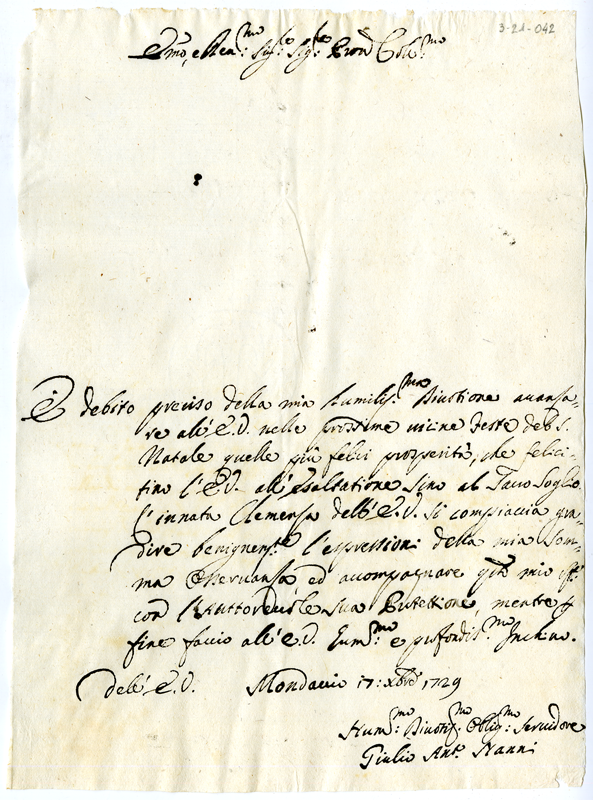 3-21-042
Em.mo, e Rev.mo: Sig.re Sig.re Pron Col.mo
È debito preciso della mia humilis.ma Divotione avanza=
re all'E.V. nelle prossime vicine feste del S.
Natale quelle più felici prosperità, che felici=
tino l'E.V. all'esaltatione sino al Sacro Soglio.
L'innata Clemenza dell'E.V. si compiaccia gra=
dire benignam.te l'espressioni della mia som=
ma Osservanza ed accompagnare q.to mio off.o
con l'Auttorevole sua Protettione, mentre p
fine faccio all'E.V. hum.mo e profondis.mo Inchino.
dell'E.V. Mondavio 17: xbre 1729
Hum.mo Divotis.mo Oblig.mo Servidore
Giulio Ant.o Nanni